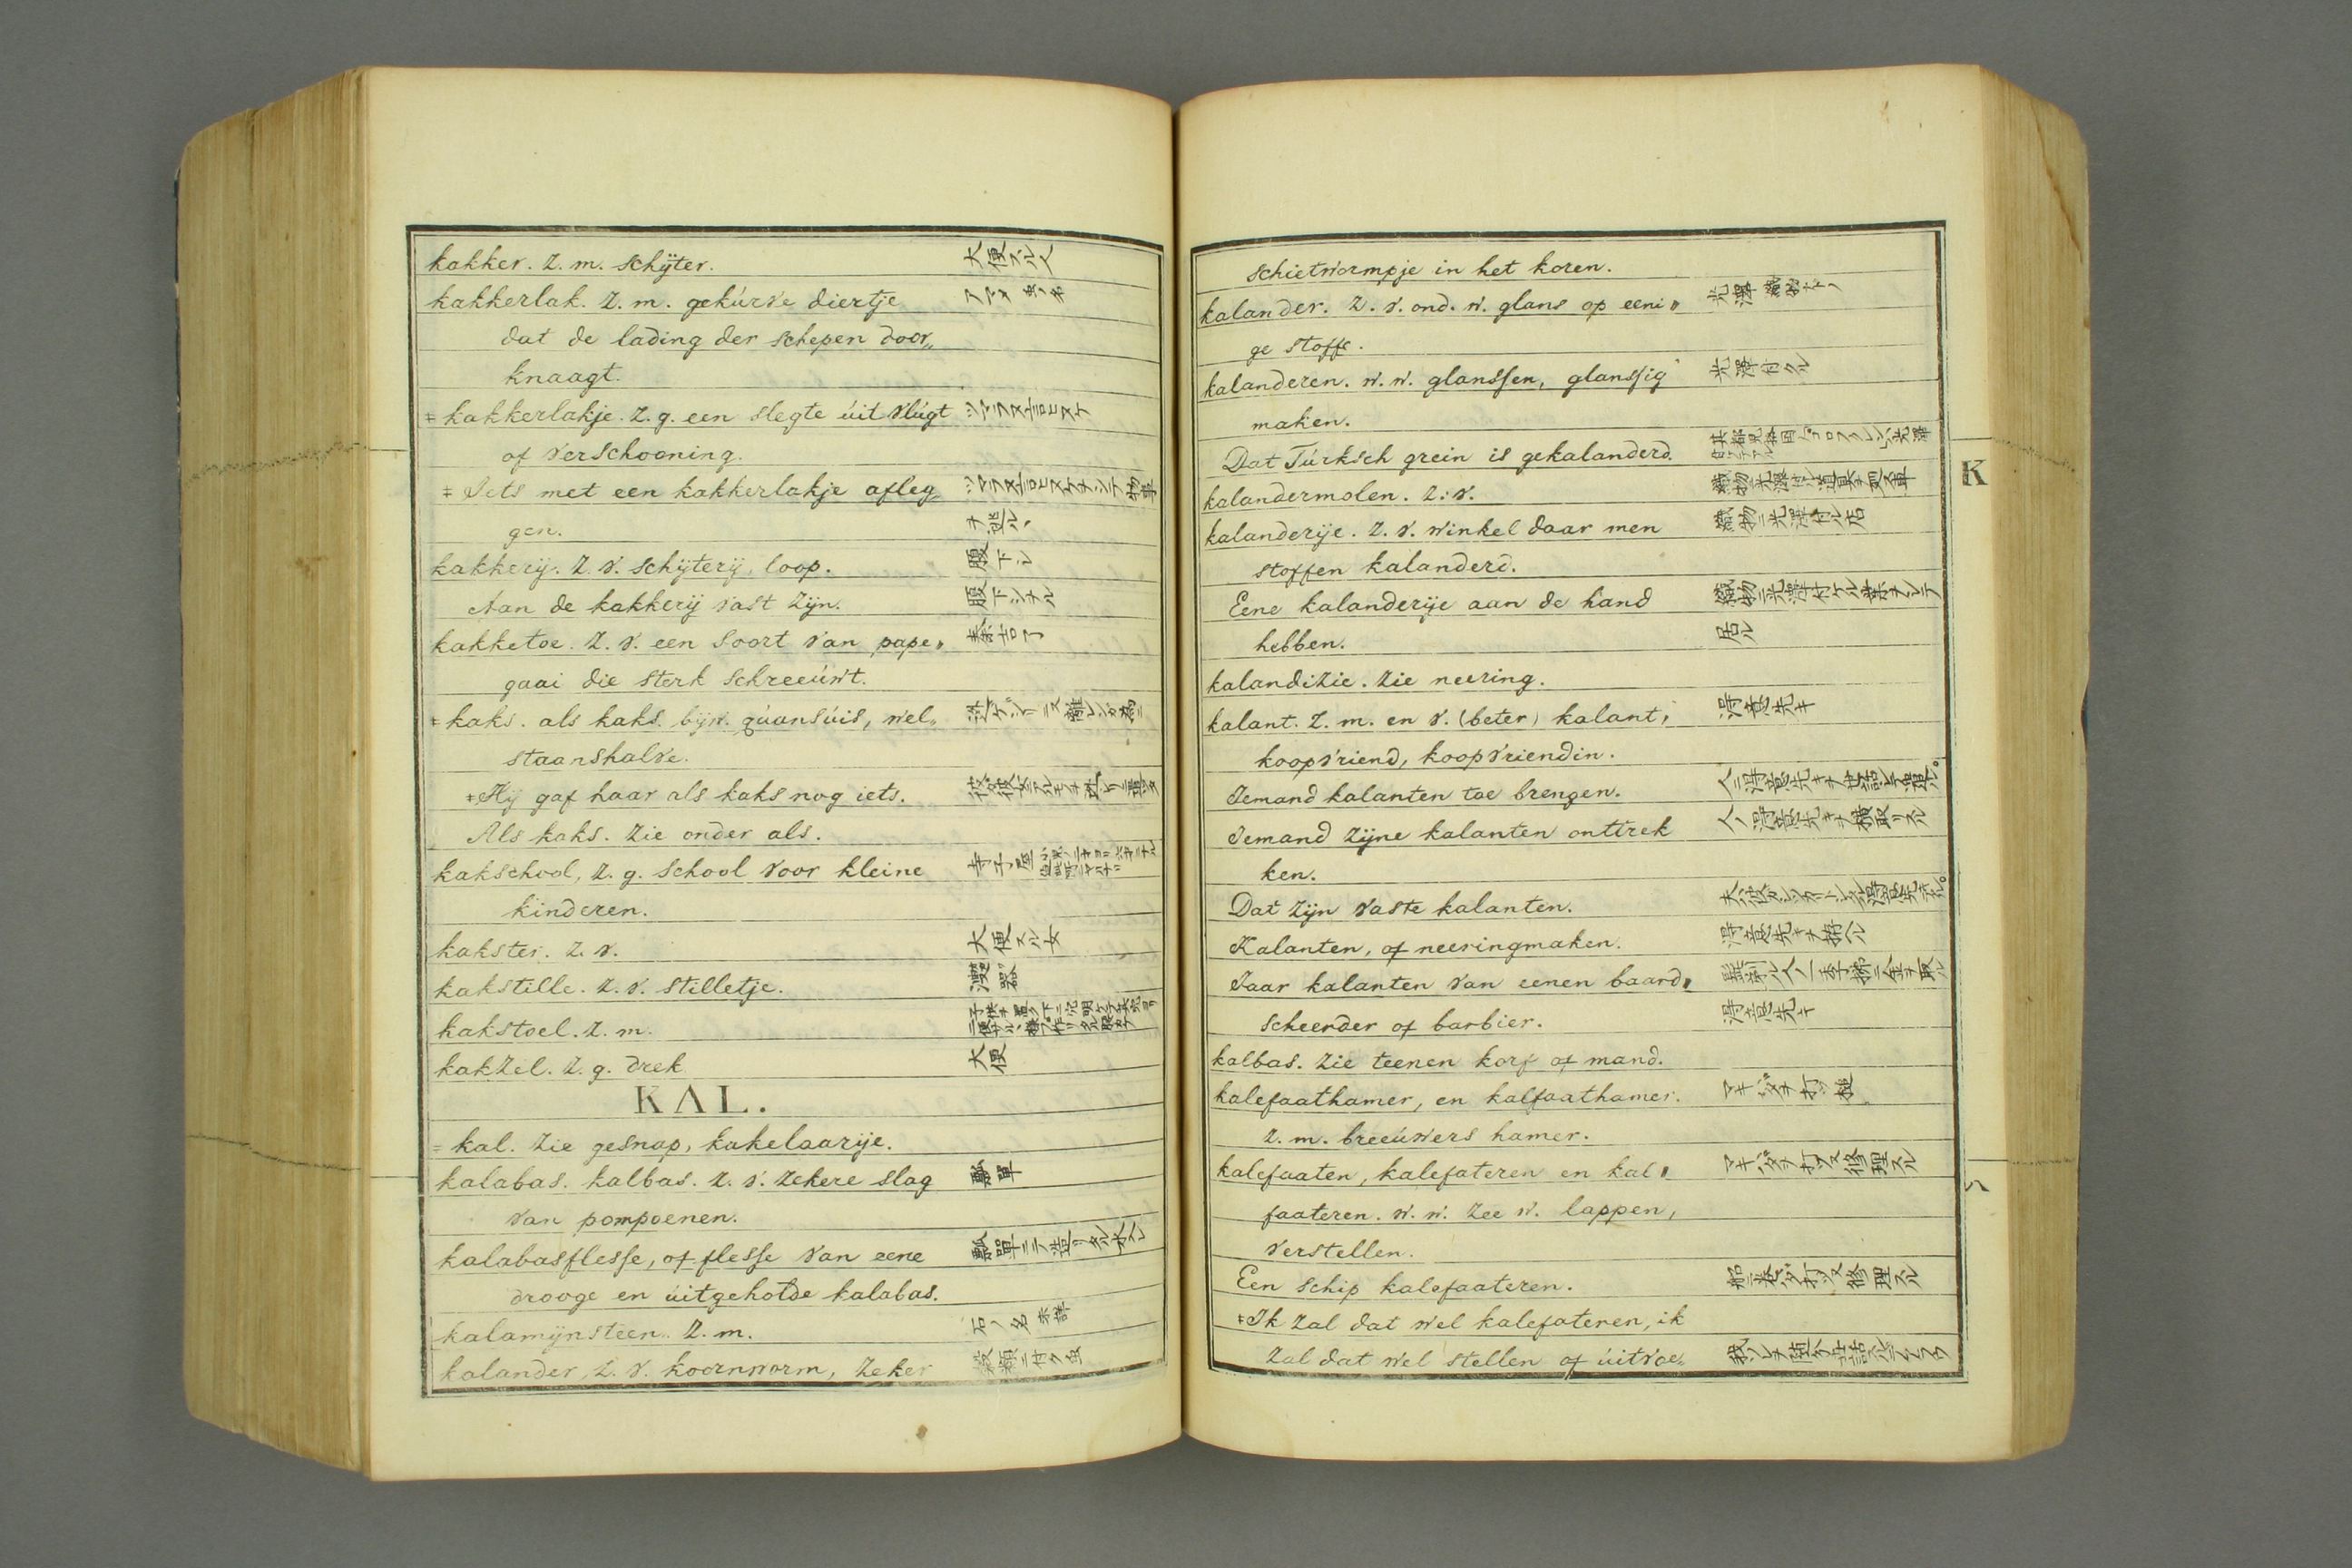 kakker. z. m. schijter. 大便スル人
kakkerlak. z. m. gekúrve diertje
dat de lading der schepen door„
knaagt.
‡ kakkerlakje. z. g. een slegte úitvlúgt ツマラヌ言ヒヌケ
of verschooning.
‡ Iets met een kakkerlakje afleg„ ツマラヌ言ヒヌケヲシテ物事
gen. ヲ逃ル
kakkerij. z. v. schijterij, loop. 腹下シ
Aan de kakkerij vast zijn. 腹下シヲル
kakketoe. z. v. een soort van pape„ 秦吉了
gaai die sterk schreeúwt.
‡ kaks. als kaks. bijw. qúansúis, wel„
staanshalve.
‡ Hij gaf haar als kaks nog iets.
Als kaks. zie onder als.
kakschool, z. g. school voor kleine 寺子屋
kinderen.
kakster. z. v. 大便スル女
kakstille. z. v. stilletje.
kakstoel. z. m.
kakzel. z. g. drek 大便
KAL.
= kal. zie gesnap, kakelaarije.
kalabas. kalbas. z. v. zekere slag 瓢單
van pompoenen.
kalabasflesse, of flesse van eene 瓢單ニテ造リタル
drooge en úitgeholde kalabas.
kalamijnsteen. z. m. 石ノ名
kalander, z. v. koornworm, zeker 穀類ニ付ク虫
schietwormpje in het koren.
kalander. z. v. ond. w. glans op eeni„ 光澤
ge stoffe.
kalanderen. w. w. glanssen, glanssig 光澤付クル
maken.
Dat Túrksch grein is gekalanderd.
kalandermolen. z. v.
kalanderije. z. v. winkel daar men 織物ニ光澤付ル店
stoffen kalanderd.
Eene kalanderije aan de hand 織物ニ光澤付ケル
hebben. 居ル
kalandizie. zie neering.
kalant. z. m. en v. (beter) kalant, 得意先キ
koopvriend, koopvriendin.
Iemand kalanten toe brengen. 人ニ得意先キヲ世話シテ遣ル。
Iemand zijne kalanten onttrek 人ノ得意先キヲ横取リスル
ken.
Dat zijn vaste kalanten.
Kalanten, of neeringmaken. 得意先キヲ拵ヘル
Jaar kalanten van eenen baard„
scheerder of barbier. 得意先キ
kalbas. zie teenen korf of mand.
kalefaathamer, en kalfaathamer. マキハダヲ打ツ槌
z. m. breeúwers hamer.
kalefaaten, kalefateren en kal„ マキハダヲ打ツ又修理スル
faateren. w. w. zee w. lappen,
verstellen.
Een schip kalefaateren. 船ニ巻ハダ打ツ又修理スル
‡ Ik zal dat wel kalefateren, ik
zal dat wel stellen of úitvoe„
K